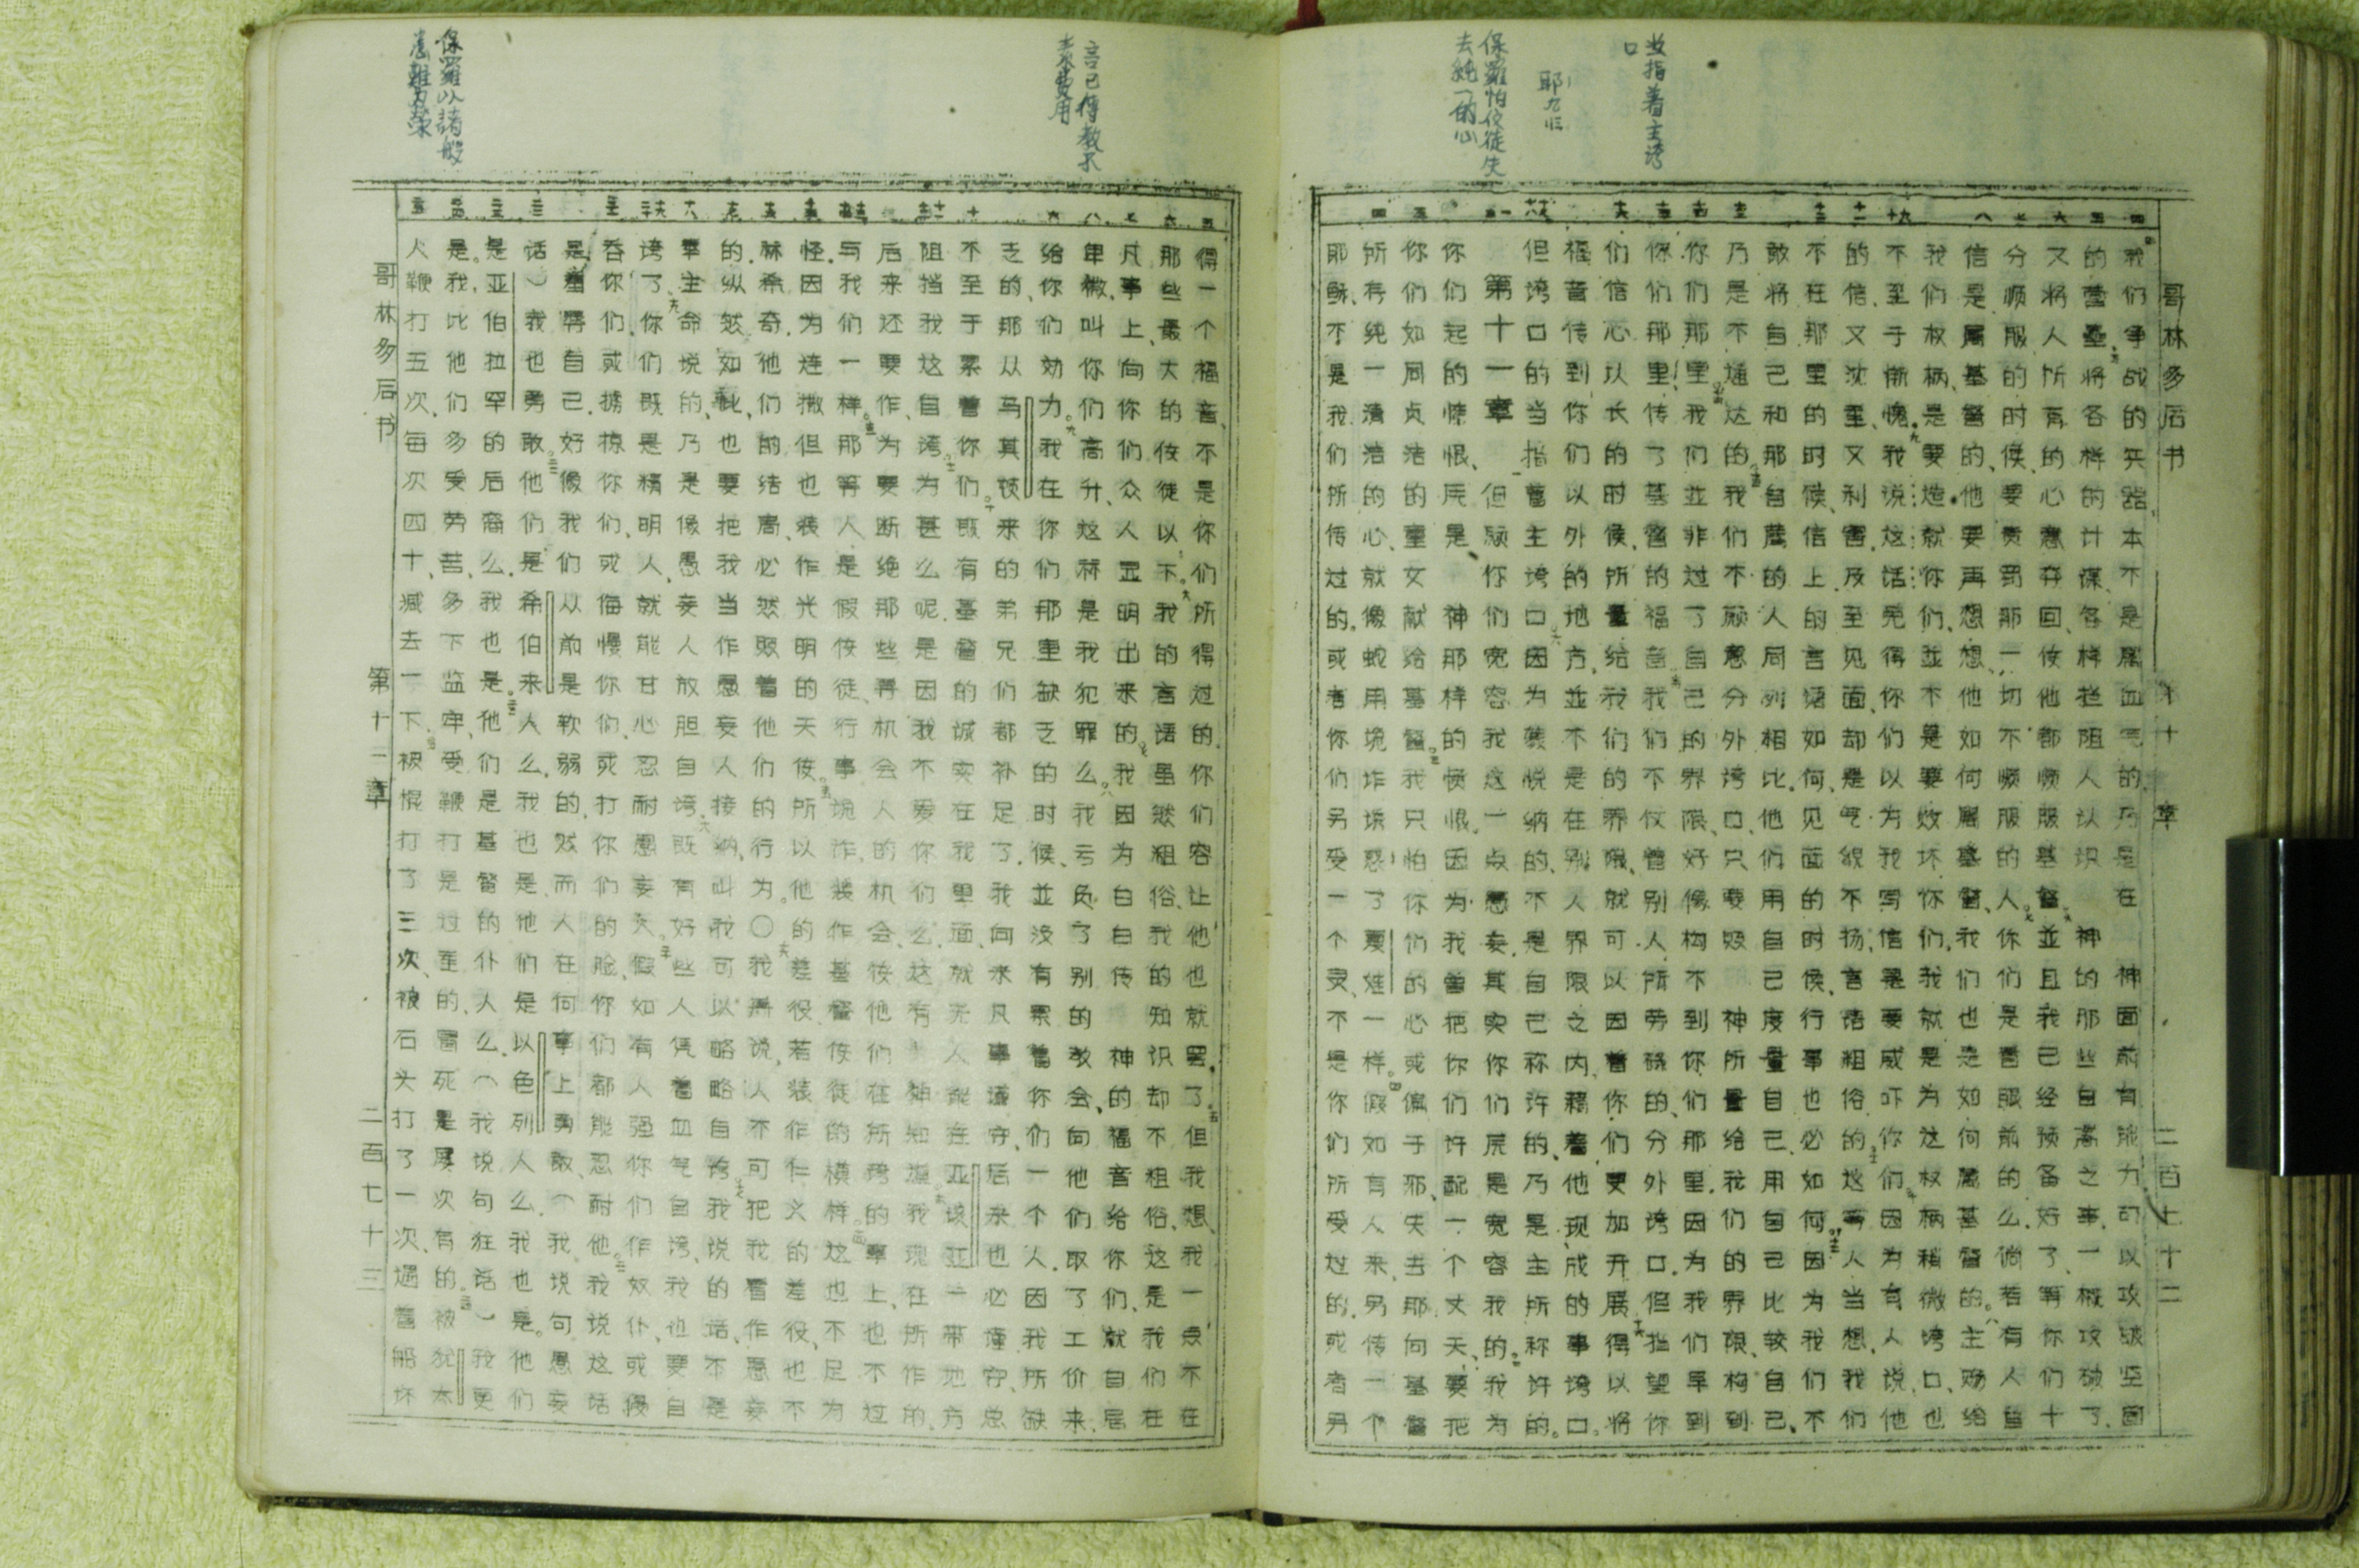 汝指着主誇口
耶九廿三
保羅怕使徒失去純一的心
哥林多后书 第十章 二百七十二
我们争战的兵器、本不是属血气的、乃是在 神面前有能力、可以攻破坚固
的营垒、将各样的计谋、各样拦阻人认识 神的那些自高之事、一概攻破了、
又将人所有的心意夺回、使他都顺服基督、並且我己经预备好了、等你们十
分顺服的时候、要责罚那一切不顺服的人。你们是看眼前的么。倘若有人自
信是属基督的、他要再想想、他如何属基督、我们也是如何属基督的。主赐给
我们权柄、是要造就你们、並不是要败坏你们、我就是为这权柄稍微夸口、也
不至于惭愧。我说这话、免得你们以为我写信是要威吓你们、因为有人说、他
的信、又沈重、又利害、及至见面、却是气貌不扬、言语粗俗的。这等人当想、我们
不在那里的时候、信上的言语如何、见面的时候、行事也必如何。因为我们不
敢将自己和那自荐的人同列相比、他们用自己度量自己、用自己比较自己、
乃是不通达的。我们不愿意分外夸口、只要照 神所量给我们的界限、构到
你们那里、我们並非过了自己的界限、好像构不到你们那里、因为我们早到
你们那里、传了基督的福音、我们不仗着别人所劳碌的、分外夸口、但指望你
们信心以长的时候、所量给我们的界限、就可以因着你们更加开展、得以将
福音传到你们以外的地方、並不是在别人界限之内、藉着他现成的事夸口。
但夸口的当指着主夸口因为蒙悦纳的、不是自己称许的、乃是主所称许的。
第十一章 但愿你们宽容我这一点愚妄、其实你们原是宽容我的。我为
你们起的愤恨、原是 神那样的愤恨因为我曾把你们许配一个丈夫、要把
你们如同贞洁的童女献给基督。我只怕你们的心或偏于邪、失去那向基督
所存纯一清洁的心、就像蛇用诡诈诱惑了夏娃一样。假如有人来、另传一个
耶稣、不是我们所传过的。或者你们另受一个灵、不是你们所受过的。或者另
言己傳教不索費用
保羅以諸般患難为荣
得一个福音、不是你们所得过的、你们容让他也就罢了。但我想、我一点不在
那些最大的使徒以下。我的言话虽然粗俗、我的知识却不粗俗、这是我们在
凡事上、向你们众人显明出来的。我因为白白传 神的福音给你们、就自居
卑微、叫你们高升、这算是我犯罪么。我亏负了别的教会、向他们取了工价来、
给你们効力。我在你们那里缺乏的时候、並没有累着你们一个人、因我所缺
乏的、那从马其顿来的弟兄们都补足了、我向来凡事谨守、后来也必谨守、总
不至于累着你们。既有基督的诚实在我里面、就无人能在亚该亚一带地方
阻挡我这自夸。为甚么呢、是因我不爱你们么、这有 神知道。我
后来还要作、为要断绝那些寻机会人的机会、使他们在所夸的事上、也不过
与我们一样。那等人是假使徒、行事诡诈、装作基督使徒的模样。这也不足为
怪、因为连撒但也装作光明的天使。所以他的差役、若装作仁义的差役、也不
算希奇、他们的结局、必然照着他们的行为。〇我再说、人不可把我看作愚妄
的、纵然如此、也要把我当作愚妄人接纳、叫我可以略略自夸。我说的话、不是
奉主命说的、乃是像愚妄人放胆自夸、既有好些人凭着血气自夸、我也要自
夸了、你们既是精明人、就能甘心忍耐愚妄人、假如有人强你们作奴仆、或侵
吞你们、或掳掠你们、或侮慢你们、或打你们的脸、你们都能忍耐他。我说这话
是羞辱自己、好像我们从前是软弱的、然而人在何事上勇敢、(我说句愚妄
话)我也勇敢。他们是希伯来人么、我也是、他们是以色列人么、我也是。他们
是亚伯拉罕的后裔么、我也是。他们是基督的仆人么、(我说句狂话)我更
是。我比他们多受劳苦、多下监牢、受鞭打是过重的、冒死是屡次有的。被犹太
人鞭打五次、每次四十、减去一下、被棍打了三次、被石头打了一次、遇着船坏
哥林多后书 第十一章 二百七十三